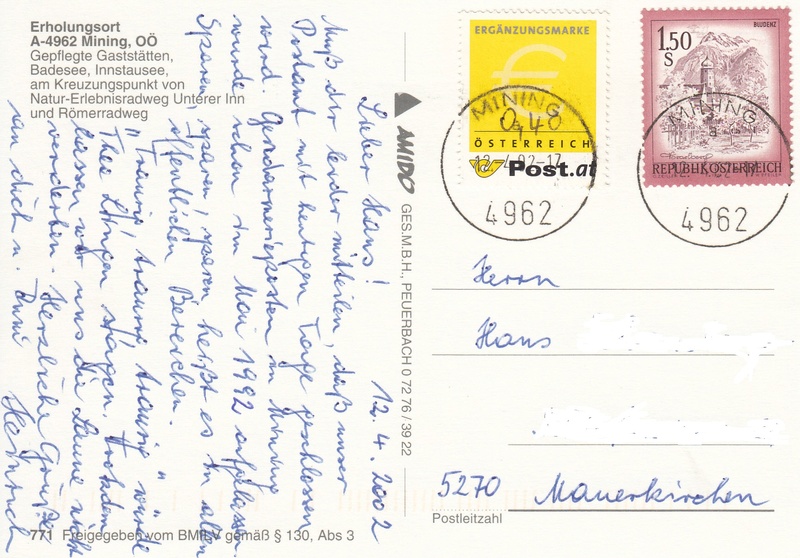 Erholungsort
A-4962 Mining, OÖ
Gepflegte Gaststätten,
Badesee, Innstausee,
am Kreuzungspunkt von
Natur-Erlebnisradweg Unterer Inn
und Römerradweg
12. 4. 2002
Lieber Hans!
Muß dir leider mitteilen, daß unser
Postamt mit heutigem Tage geschlossen
wird. Gendarmerieposten in Mining
wurde schon im Mai 1992 aufgelassen.
Sparen, sparen, sparen heißt es in allen
öffentlichen Bereichen.
"Traurig, traurig, traurig" würde
Theo Lingen sagen. Trotzdem
lassen wir uns die Laune nicht
verderben. Herzliche Grüße
an dich u.
Heinrich
AMIDO GES.M.B.H., PEUERBACH 0 72 76 / 39 22
ERGÄNZUNGSMARKE
€
0,40
ÖSTERREICH
Post.at
BLUDENZ
1.50
S
REPUBLIK ÖSTERREICH
MINING
12.-4.02-17
4962
MINING
4962
Herrn
Hans
5270 Mauerkirchen
Postleitzahl
771 Freigegeben vom BMfLV gemäß § 130, Abs 3